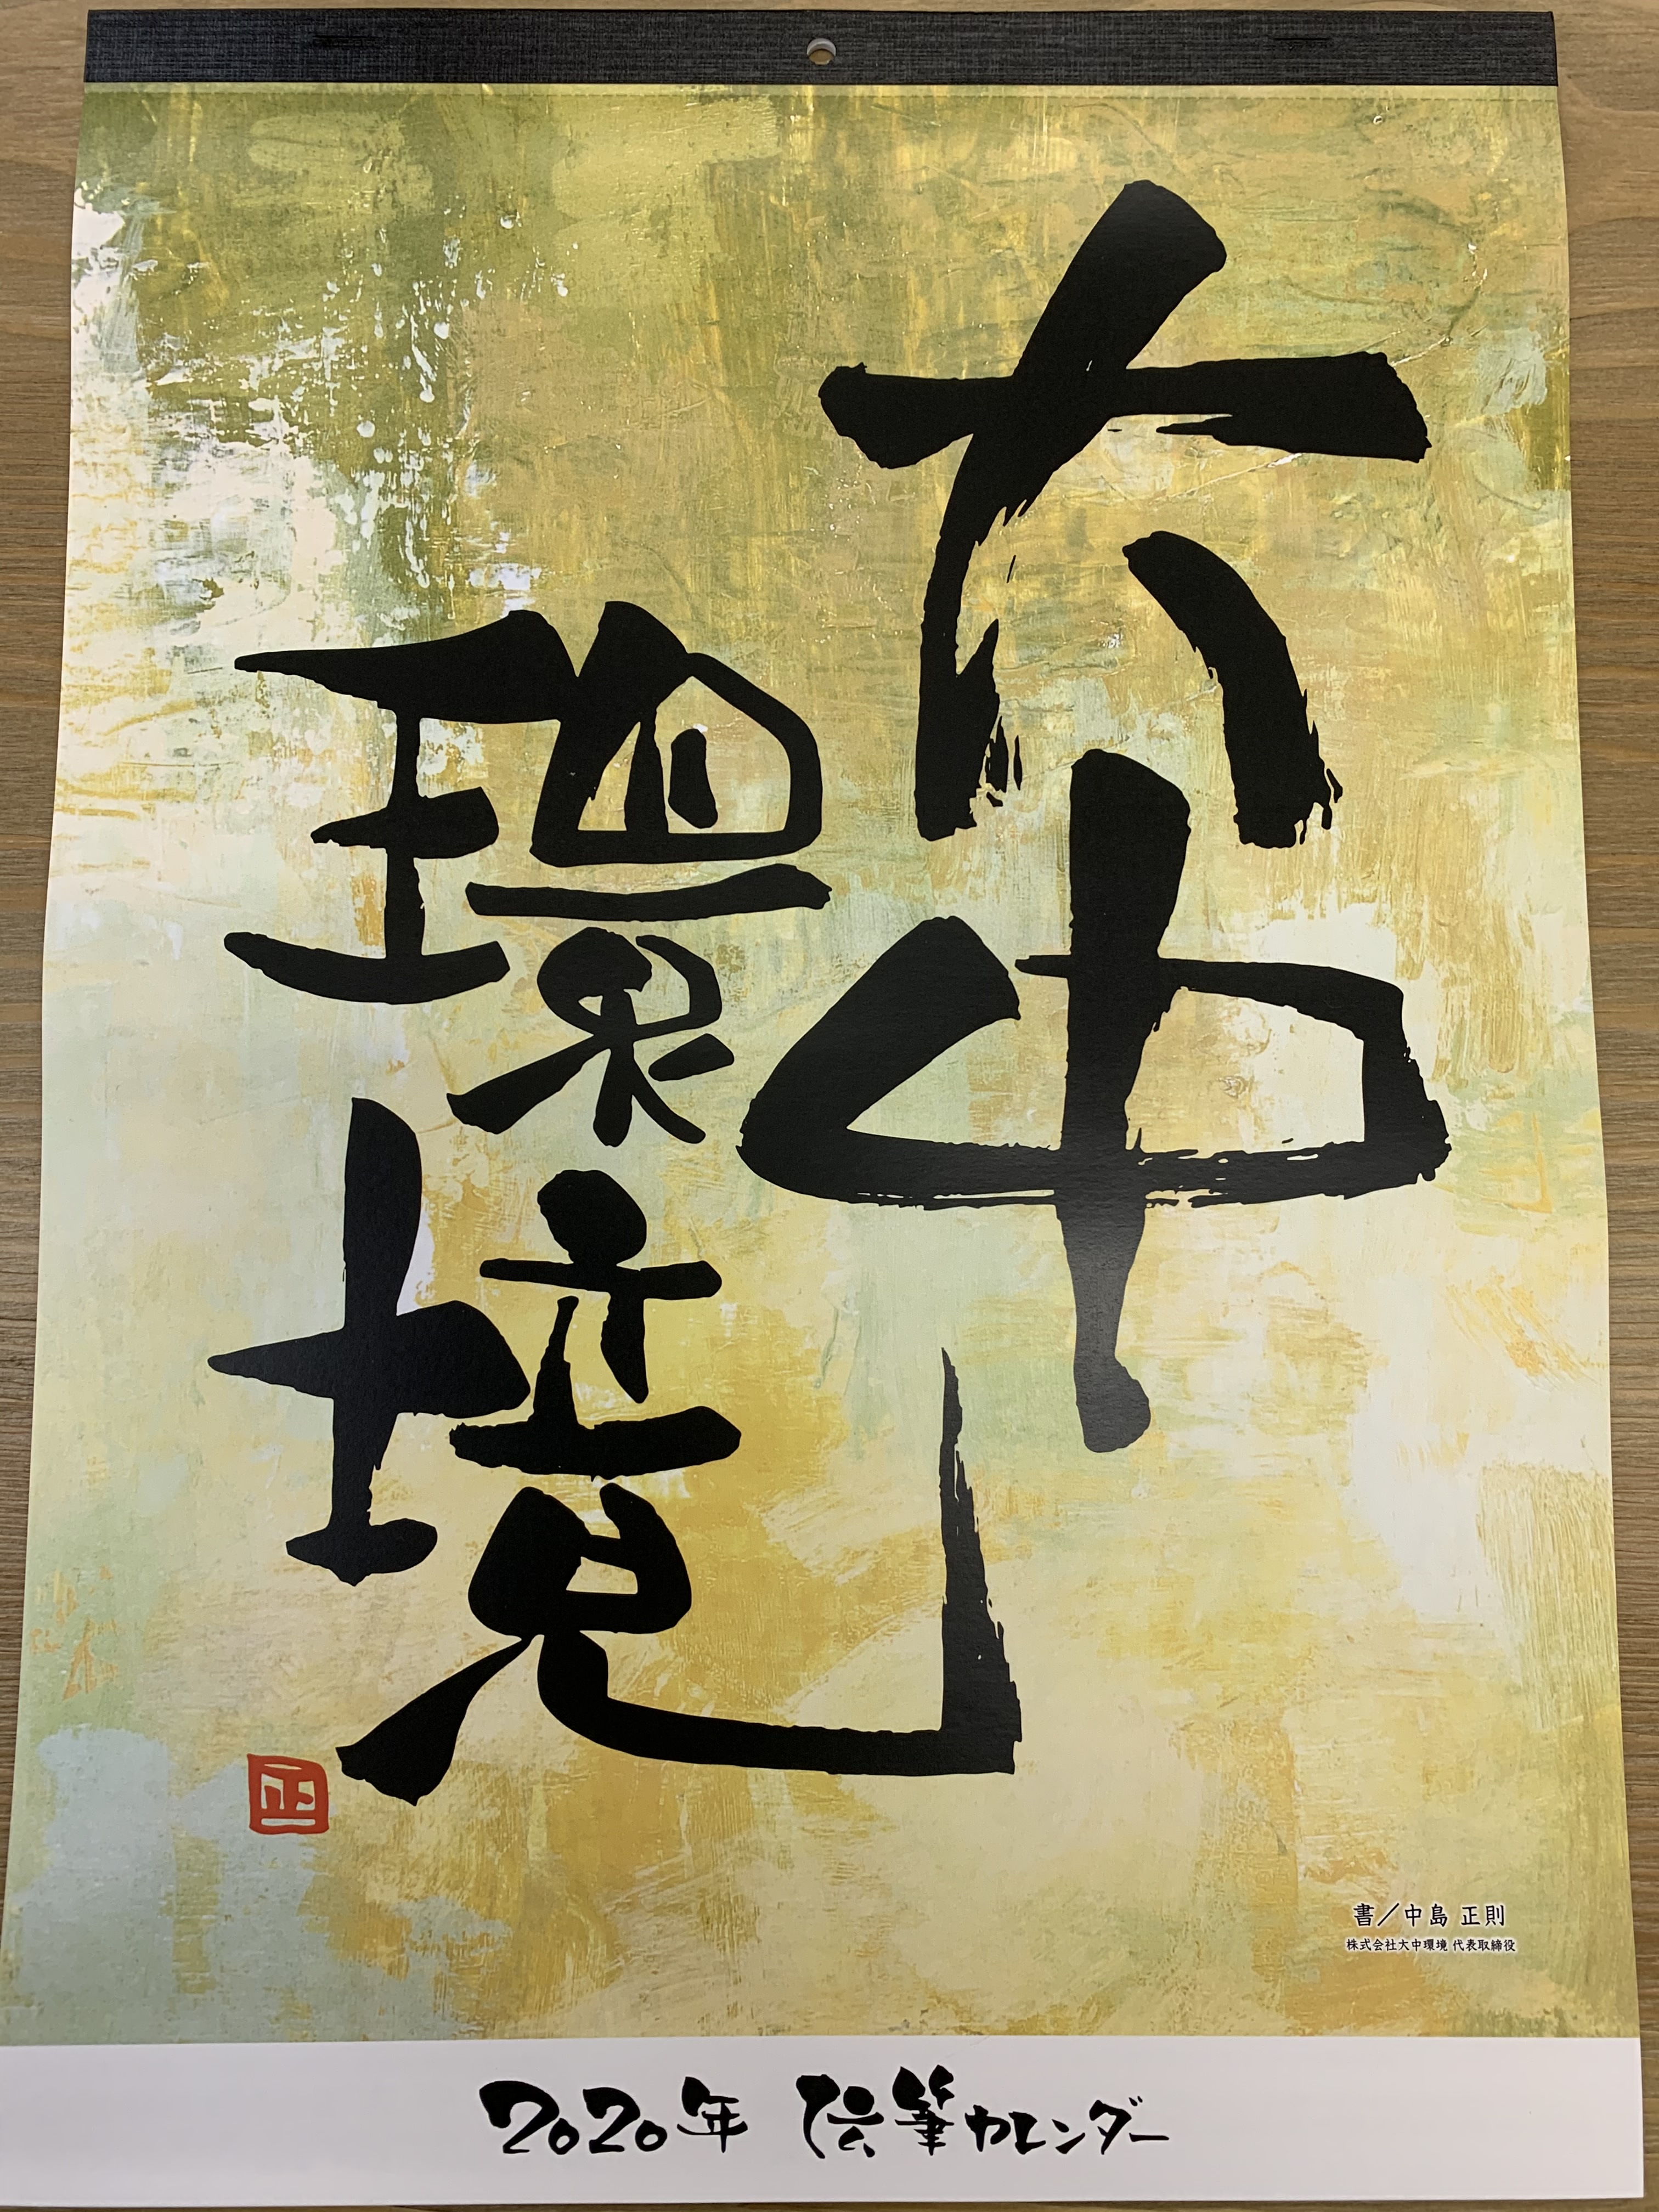 大中
環境
正
書／中島 正則
株式会社大中環境 代表取締役
2020年 伝筆カレンダー